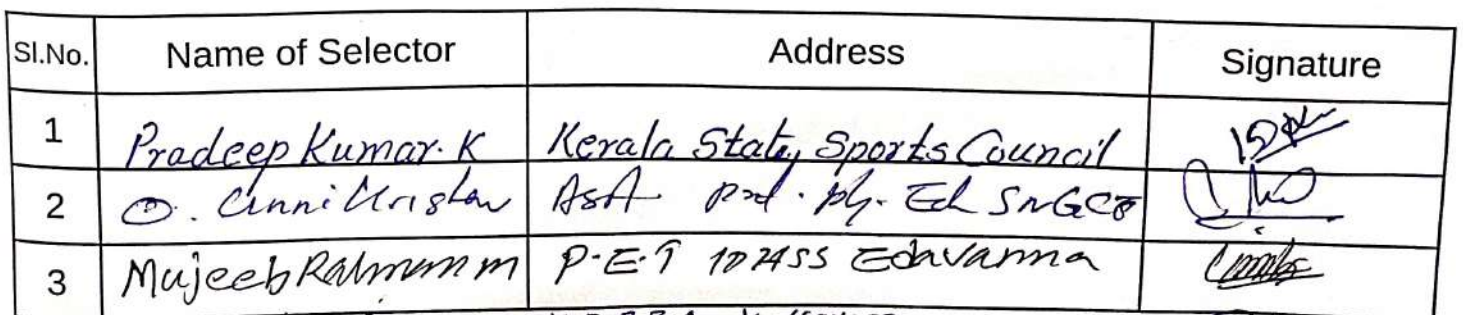 Sl.No. Name of Selector Address Signature
1 Pradeep Kumar. K Kerala State Sports Council
2 O. Unni Krishnan Asst Prof. Phy. Ed SNGCE
3 Mujeeb Rahman m P.E.T Edavanna